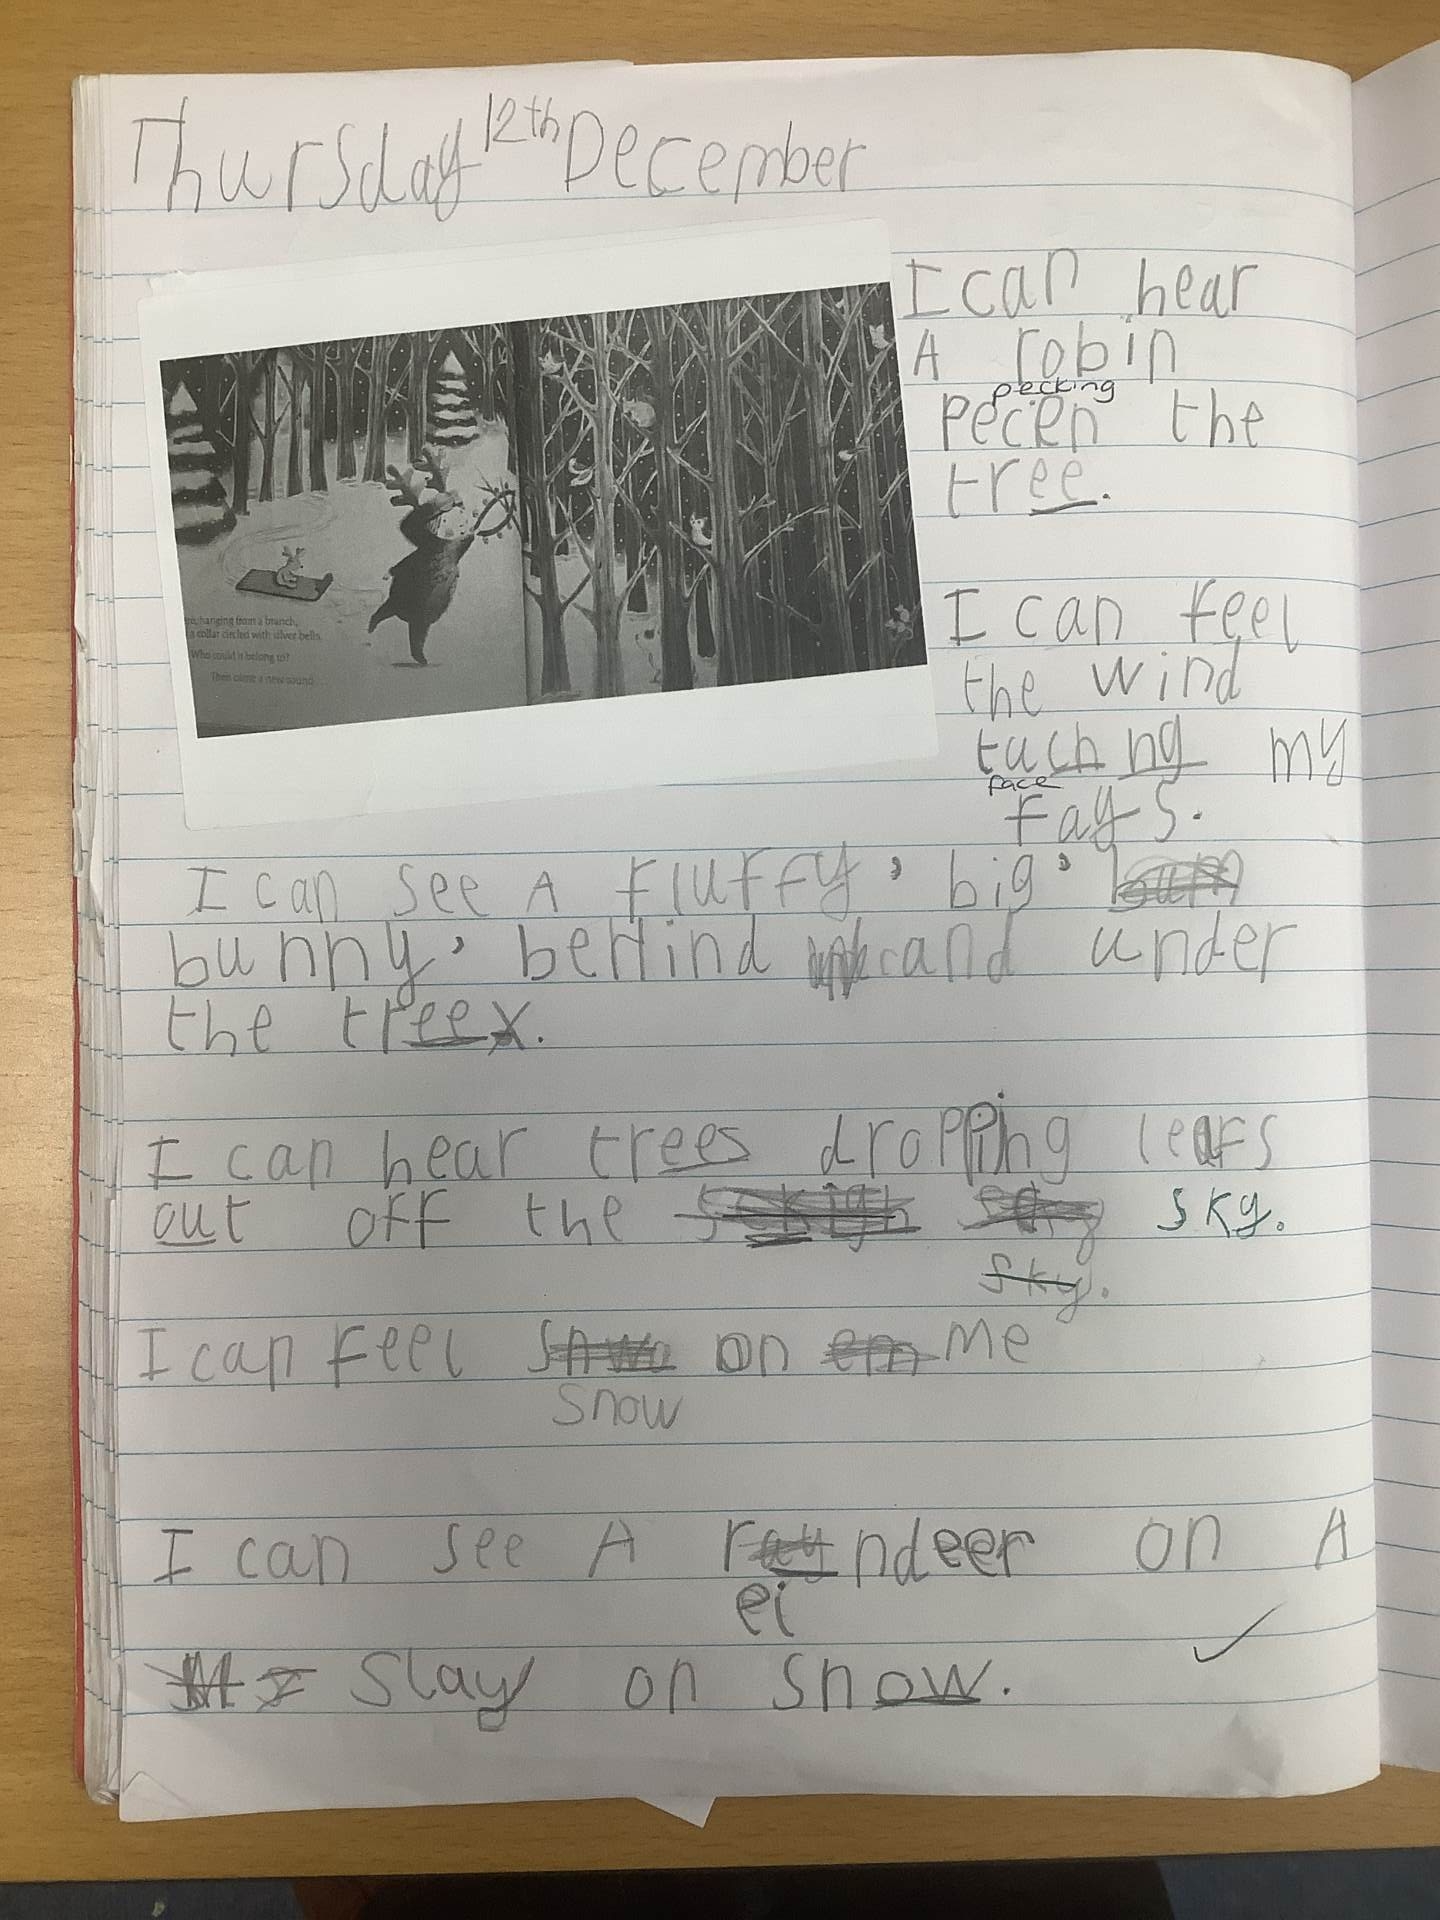 Thursday 12th December
I can hear
A robin
pecking
pecen the
tree.
re, hanging from a branch,
a collar circled with silver bells.
Who could it belong to?
Then came a new sound . . .
I can feel
the wind
tuchng my
face
fays.
I can see A fluffy, big,
bunny, behind and under
the tree.
I can hear trees dropping leafs
out off the sky.
sky.
I can feel on me
snow
I can see A r ndeer on A
ei
slay on snow.